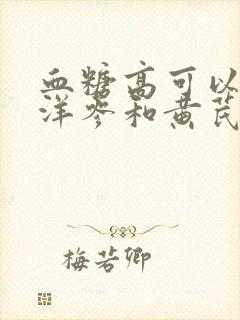 血糖高可以
洋参和黄芪
梅若卿